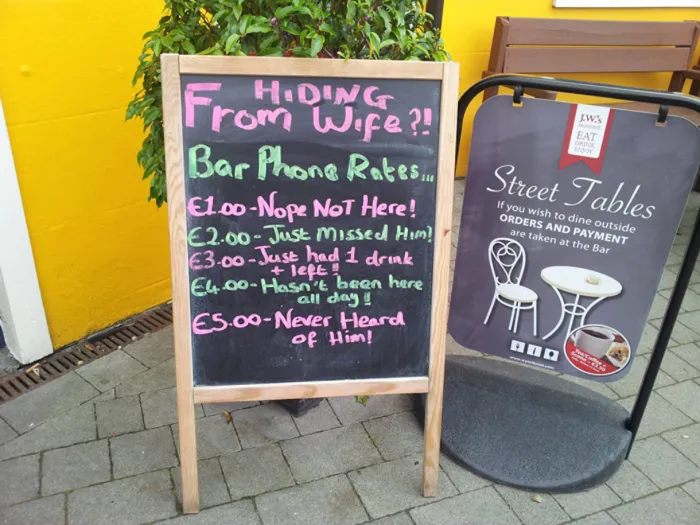 HiDING
From Wife?!
Bar Phone Rates...
€1.00-Nope Not Here!
€2.00-Just Missed Him!
€3.00-Just had 1 drink
+ left!!
€4.00-Hasn't been here
all day!!
€5.00-Never Heard
of Him!
J.W.'s
EAT
DRINK
ENJOY
Street Tables
If you wish to dine outside
ORDERS AND PAYMENT
are taken at the Bar